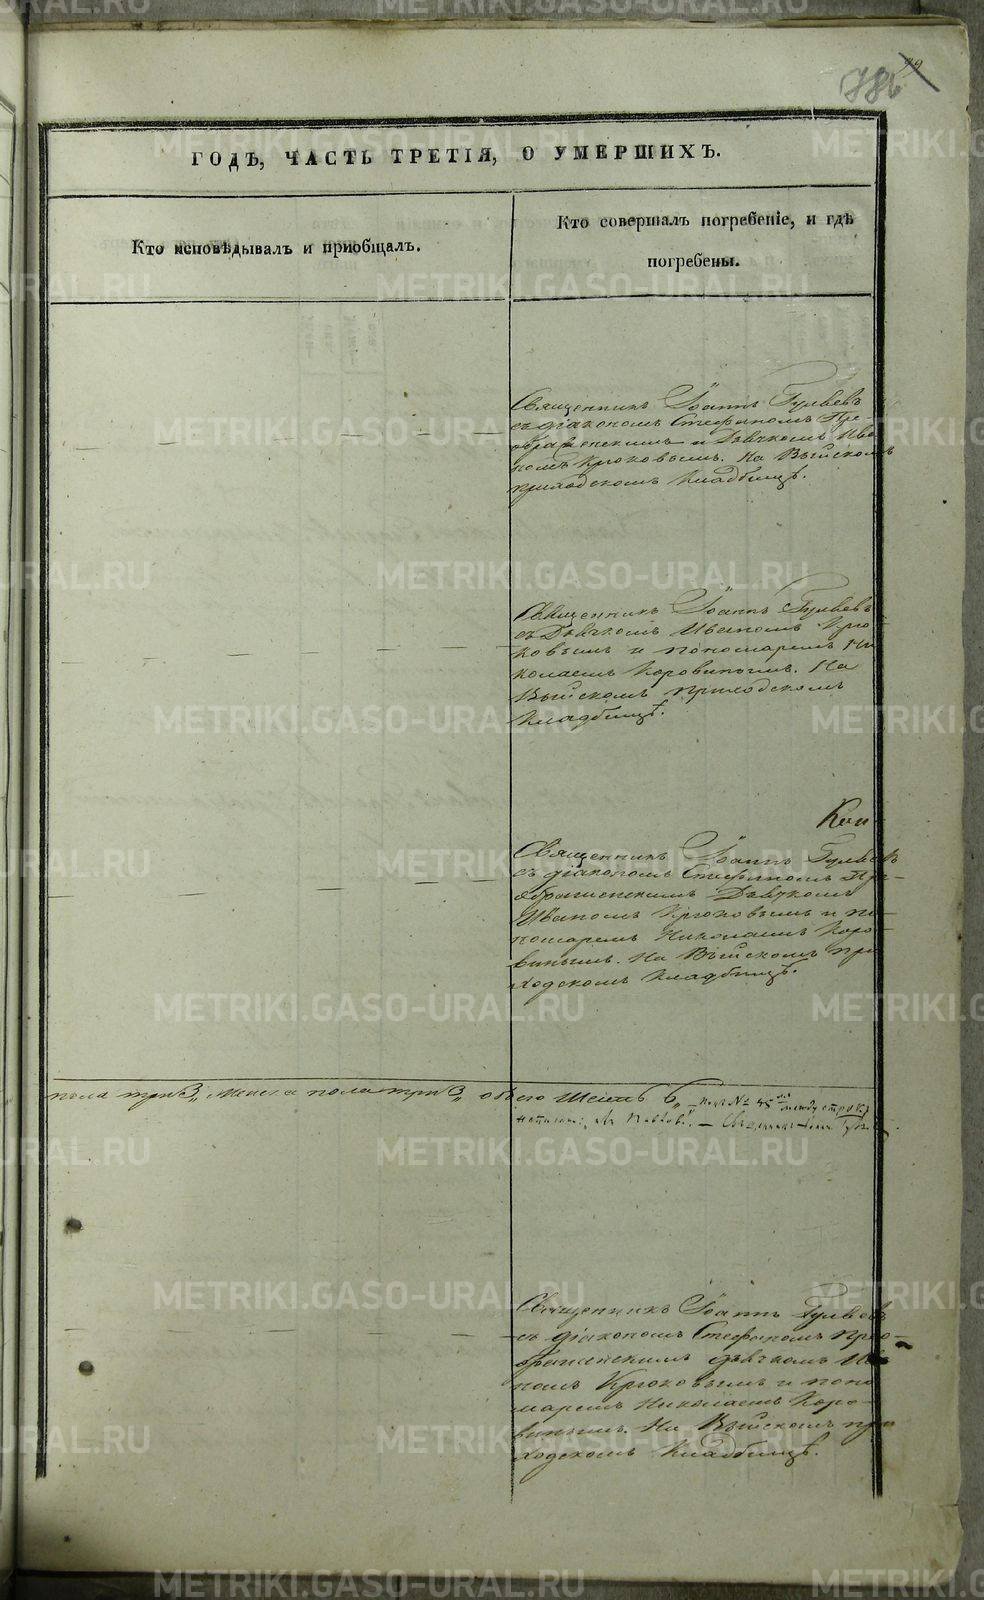 99
786
ГОДЪ, ЧАСТЬ ТРЕТІЯ, О УМЕРШИХЪ.
Кто исповѣдывалъ и пріобщалъ.
Кто совершалъ погребеніе, и гдѣ
погребены.
Священникъ Іоаннъ Гуляевъ
съ діакономъ Стефаномъ Пре-
ображенскимъ и Дьячкомъ Ива
номъ Крюковымъ. На Выйскомъ
приходскомъ Кладбищѣ.
Священникъ Іоаннъ Гуляевъ
съ Дьячкомъ Иваномъ Крю
ковымъ и пономаремъ Ни
колаемъ Коровинымъ. На
Выйскомъ приходскомъ
Кладбищѣ.
Священникъ Іоаннъ Гуляевъ
съ діакономъ Стефаномъ Пре-
ображенскимъ Дьячкомъ
Иваномъ Крюковымъ и по-
номаремъ Николаемъ Коро-
винымъ. На Выйскомъ при
ходскомъ Кладбищѣ.
пола три 3, женска пола три 3, обоего шесть 6, — подъ № 45 между строкъ
Священникъ Іоаннъ Гуляевъ
съ діакономъ Стефаномъ Прео-
браженскимъ дьячкомъ Ива
номъ Крюковымъ и поно
маремъ Николаемъ Коро-
винымъ. На Выйскомъ при
ходскомъ Кладбищѣ.
METRIKI.GASO-URAL.RU